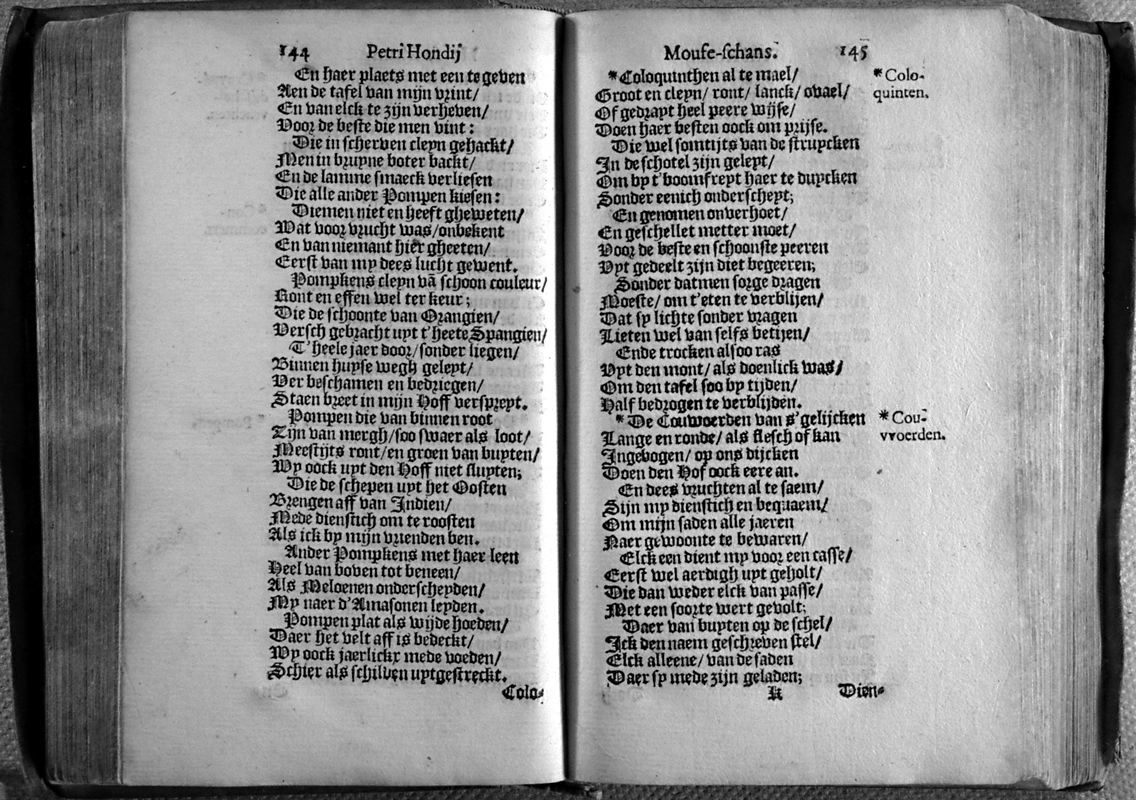 144 Petri Hondij
En haer plaets met een te geven
Aen de tafel van mijn vrint/
En van elck te zijn verheven/
Voor de beste die men vint:
Die in scherven cleyn gehackt/
Men in bruyne boter backt/
En de lamme smaeck verliesen
Die alle ander Pompen kiesen:
Diemen niet en heeft gheweten/
Wat voor vrucht was/onbekent
En van niemant hier gheeten/
Eerst van my dees lucht gewent.
Pompkens cleyn vã schoon couleur/
Ront en effen wel ter keur;
Die de schoonte van Orangien/
Versch gebracht uyt t'heete Spangien/
T'heele jaer door/sonder liegen/
Binnen huyse wegh geleyt/
Ver beschamen en bedriegen/
Staen breet in mijn Hoff verspreyt.
Pompen die van binnen root
Zijn van mergh/soo swaer als loot/
Meestijts ront/en groen van buyten/
Wy oock uyt den Hoff niet sluyten;
Die de schepen uyt het Oosten
Brengen aff van Indien/
Mede dienstich om te roosten
Als ick by mijn vrienden ben.
Ander Pompkens met haer leen
Heel van boven tot beneen/
Als Meloenen onderscheyden/
My naer d'Amasonen leyden.
Pompen plat als wijde hoeden/
Daer het velt aff is bedeckt/
Wy oock jaerlickx mede voeden/
Schier als schilden uytgestreckt.
Colo-
Mouse-schans. 145
*Coloquinthen al te mael/
Groot en cleyn/ ront/ lanck/ ovael/
Of gedrayt heel peere wijse/
Doen haer besten oock om prijse.
Die wel somtijts van de struycken
In de schotel zijn geleyt/
Om by t'boomfreyt haer te duycken
Sonder eenich onderscheyt;
En genomen onverhoet/
En geschellet metter moet/
Voor de beste en schoonste peeren
Uyt gedeelt zijn diet begeeren;
Sonder datmen sorge dragen
Moeste/ om t'eten te verblijen/
Dat sy lichte sonder vragen
Lieten wel van selfs betijen/
Ende trocken alsoo ras
Uyt den mont/ als doenlick was/
Om den tafel soo by tijden/
Half bedrogen te verblijden.
* De Couwoerden van s'gelijcken
Lange en ronde/ als flesch of kan
Ingebogen/ op ons dijcken
Doen den Hof oock eere an.
En dees vruchten al te saem/
Sijn my dienstich en bequaem/
Om mijn saden alle jaeren
Naer gewoonte te bewaren/
Elck een dient my voor een casse/
Eerst wel aerdigh uyt geholt/
Die dan weder elck van passe/
Met een soorte wert gevolt;
Daer van buyten op de schel/
Ick den naem geschreven stel/
Elck alleene/ van de saden
Daer sy mede zijn geladen;
K Dien-
* Colo-
quinten.
* Cou-
vvoerden.